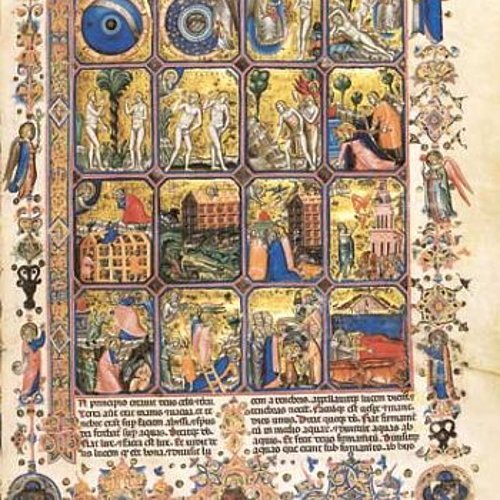 principio creavit deus celū
Terra aūt erat inanis et vacua et te
nebre erāt sup faciem abyssi, et spūs
ferebat sup aquas. Dixitq ds.
fiat lux. Et facta est lux. Et vidit de
us lucem bona. et divisit lu
cem a tenebris. appellavitq lucem diem
tenebras nocte. Factūq est vespe et mane
dies unus. Dixit quoq ds. Fiat firmamē
tū in medio aquar. et dividat aquas ab
aquis. Et fecit deus firmamētū. Divisitq
aquas que erant sub firmamēto. ab hijs